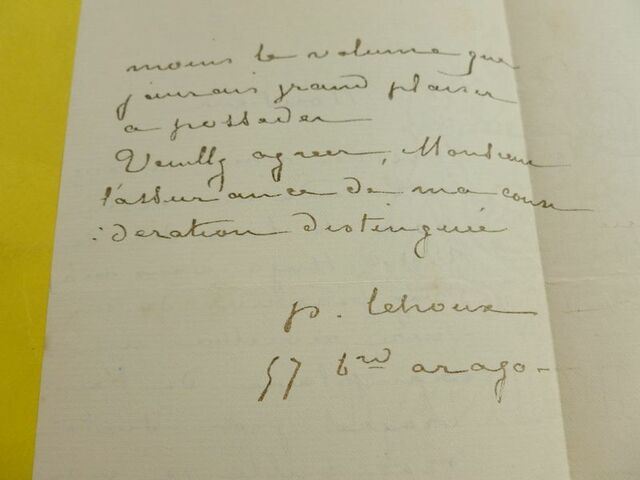 moins le volume que
j'aurais grand plaisir
a posseder
Veuillez agreer, Monsieur
l'assurance de ma consi
:deration distinguée
p. Lehoux
57 b^rd arago-